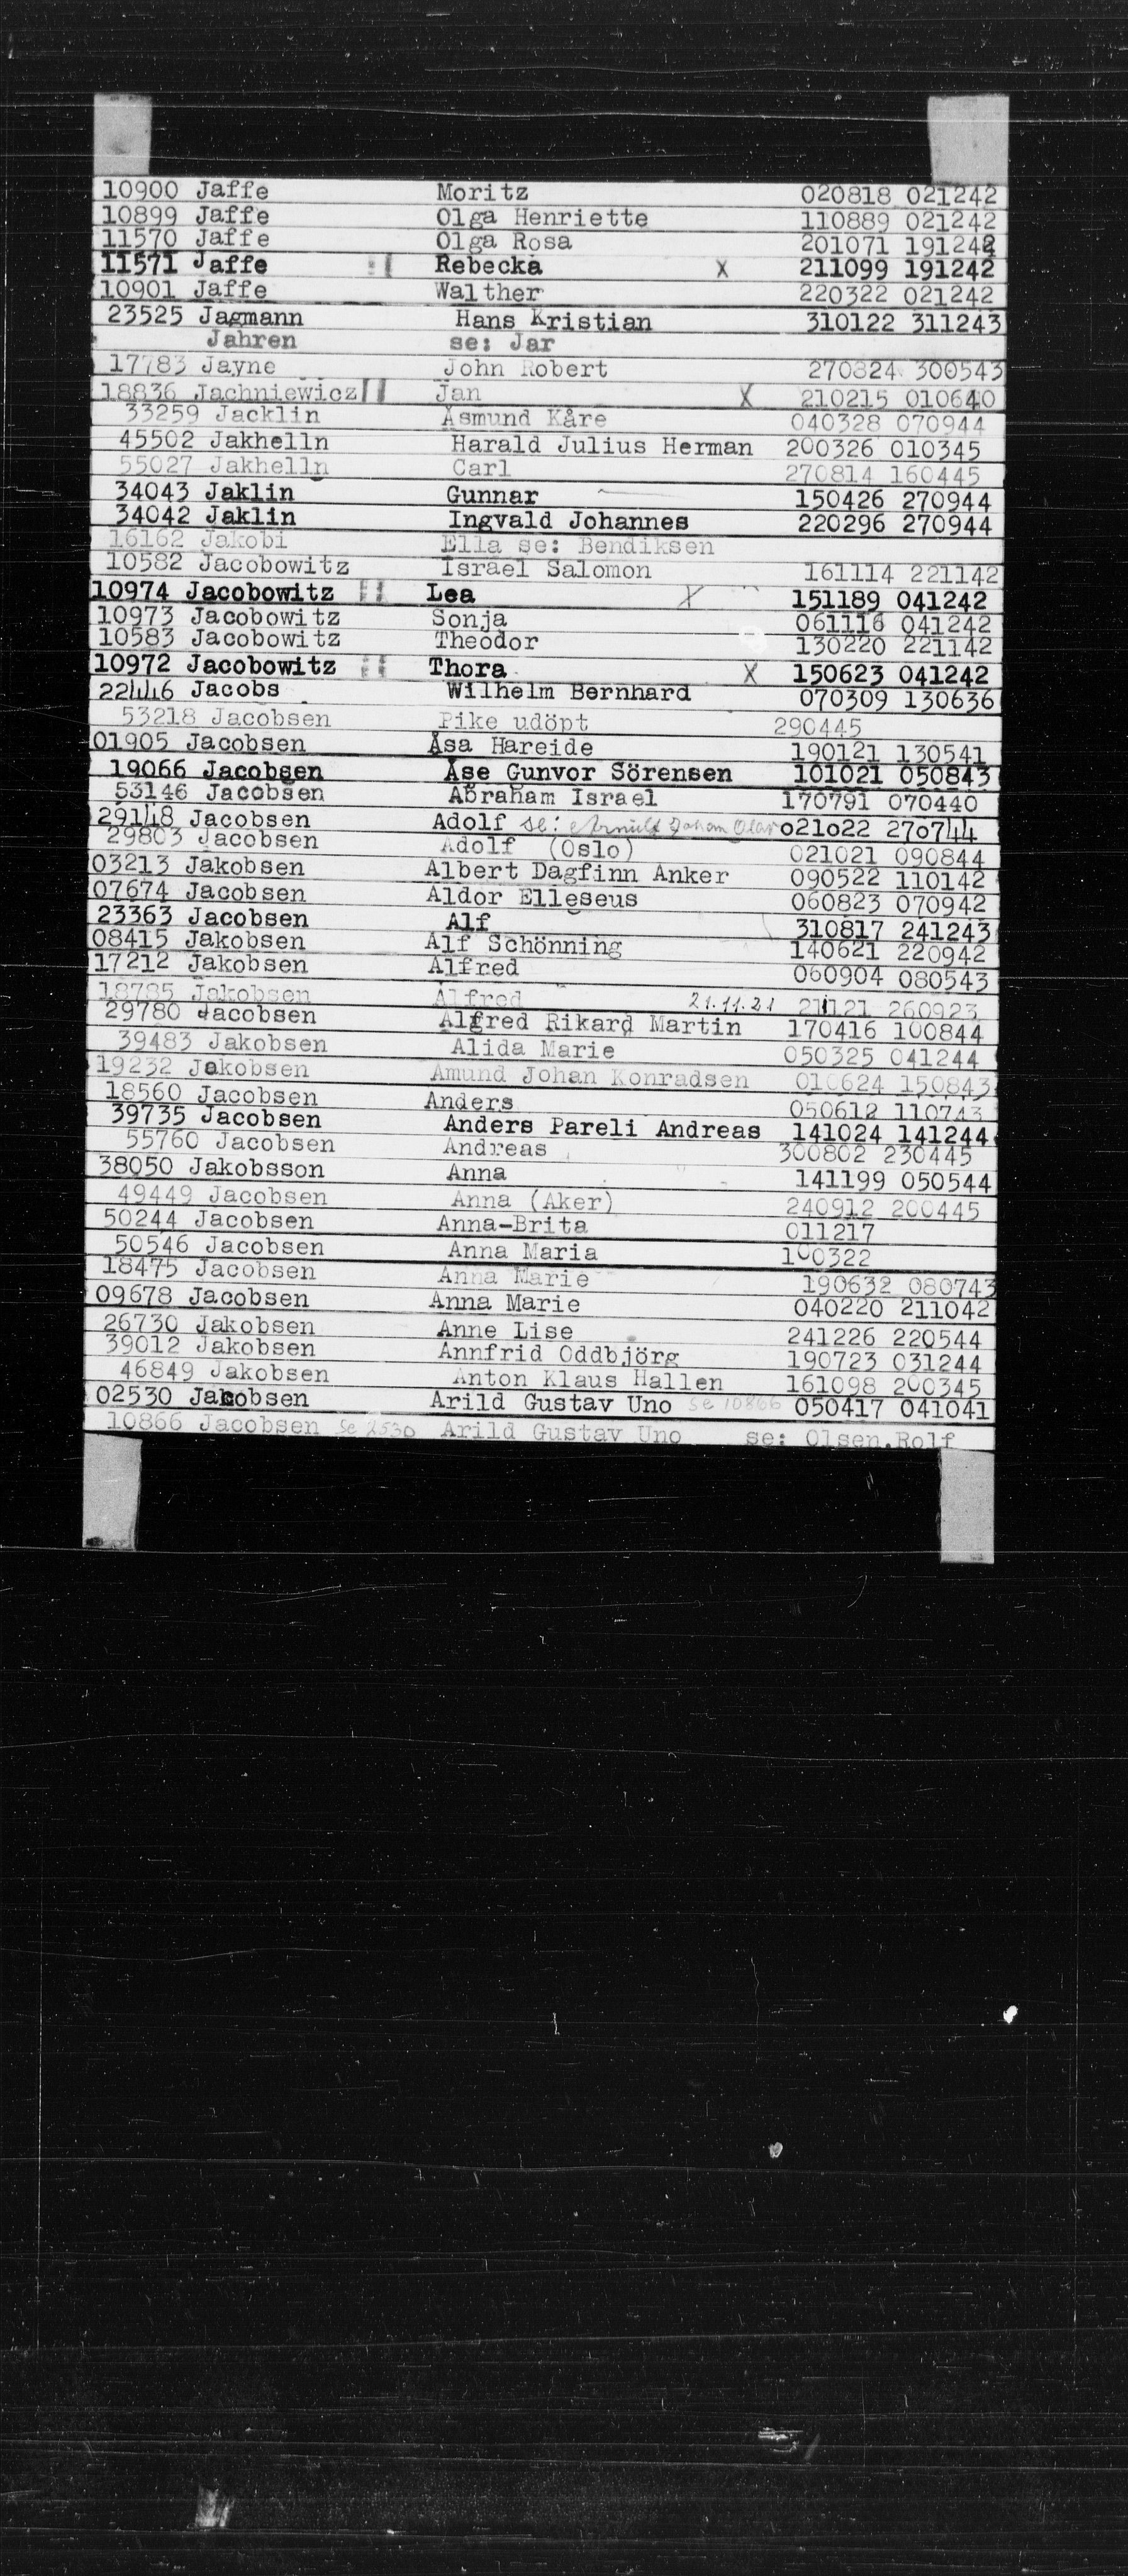 10900 Jaffe Moritz 020818 021242
10899 Jaffe Olga Henriette 110889 021242
11570 Jaffe Olga Rosa 201071 191242
11571 Jaffe Rebecka X 211099 191242
10901 Jaffe Walther 220322 021242
23525 Jagmann Hans Kristian 310122 311243
Jahren se: Jar
17783 Jayne John Robert 270824 300543
18836 Jachniewicz Jan X 210215 010640
33259 Jacklin Åsmund Kåre 040328 070944
45502 Jakhelln Harald Julius Herman 200326 010345
55027 Jakhelln Carl 270814 160445
34043 Jaklin Gunnar 150426 270944
34042 Jaklin Ingvald Johannes 220296 270944
16162 Jakobi Ella se: Bendiksen
10582 Jacobowitz Israel Salomon 161114 221142
10974 Jacobowitz Lea X 151189 041242
10973 Jacobowitz Sonja 061116 041242
10583 Jacobowitz Theodor 130220 221142
10972 Jacobowitz Thora X 150623 041242
22446 Jacobs Wilhelm Bernhard 070309 130636
53218 Jacobsen Pike udöpt 290445
01905 Jacobsen Åsa Hareide 190121 130541
19066 Jacobsen Åse Gunvor Sörensen 101021 050843
53146 Jacobsen Abraham Israel 170791 070440
29148 Jacobsen Adolf se: Johan Olav 021022 270744
29803 Jacobsen Adolf (Oslo) 021021 090844
03213 Jakobsen Albert Dagfinn Anker 090522 110142
07674 Jacobsen Aldor Elleseus 060823 070942
23363 Jacobsen Alf 310817 241243
08415 Jakobsen Alf Schönning 140621 220942
17212 Jakobsen Alfred 060904 080543
18785 Jakobsen Alfred 21.11.21 211121 260923
29780 Jacobsen Alfred Rikard Martin 170416 100844
39483 Jakobsen Alida Marie 050325 041244
19232 Jakobsen Amund Johan Konradsen 010624 150843
18560 Jacobsen Anders 050612 110743
39735 Jacobsen Anders Pareli Andreas 141024 141244
55760 Jacobsen Andreas 300802 230445
38050 Jakobsson Anna 141199 050544
49449 Jacobsen Anna (Aker) 240912 200445
50244 Jacobsen Anna-Brita 011217
50546 Jacobsen Anna Maria 100322
18475 Jacobsen Anna Marie 190632 080743
09678 Jacobsen Anna Marie 040220 211042
26730 Jakobsen Anne Lise 241226 220544
39012 Jakobsen Annfrid Oddbjörg 190723 031244
46849 Jakobsen Anton Klaus Hallen 161098 200345
02530 Jacobsen Arild Gustav Uno se 10866 050417 041041
10866 Jacobsen se 2530 Arild Gustav Uno se: Olsen.Rolf